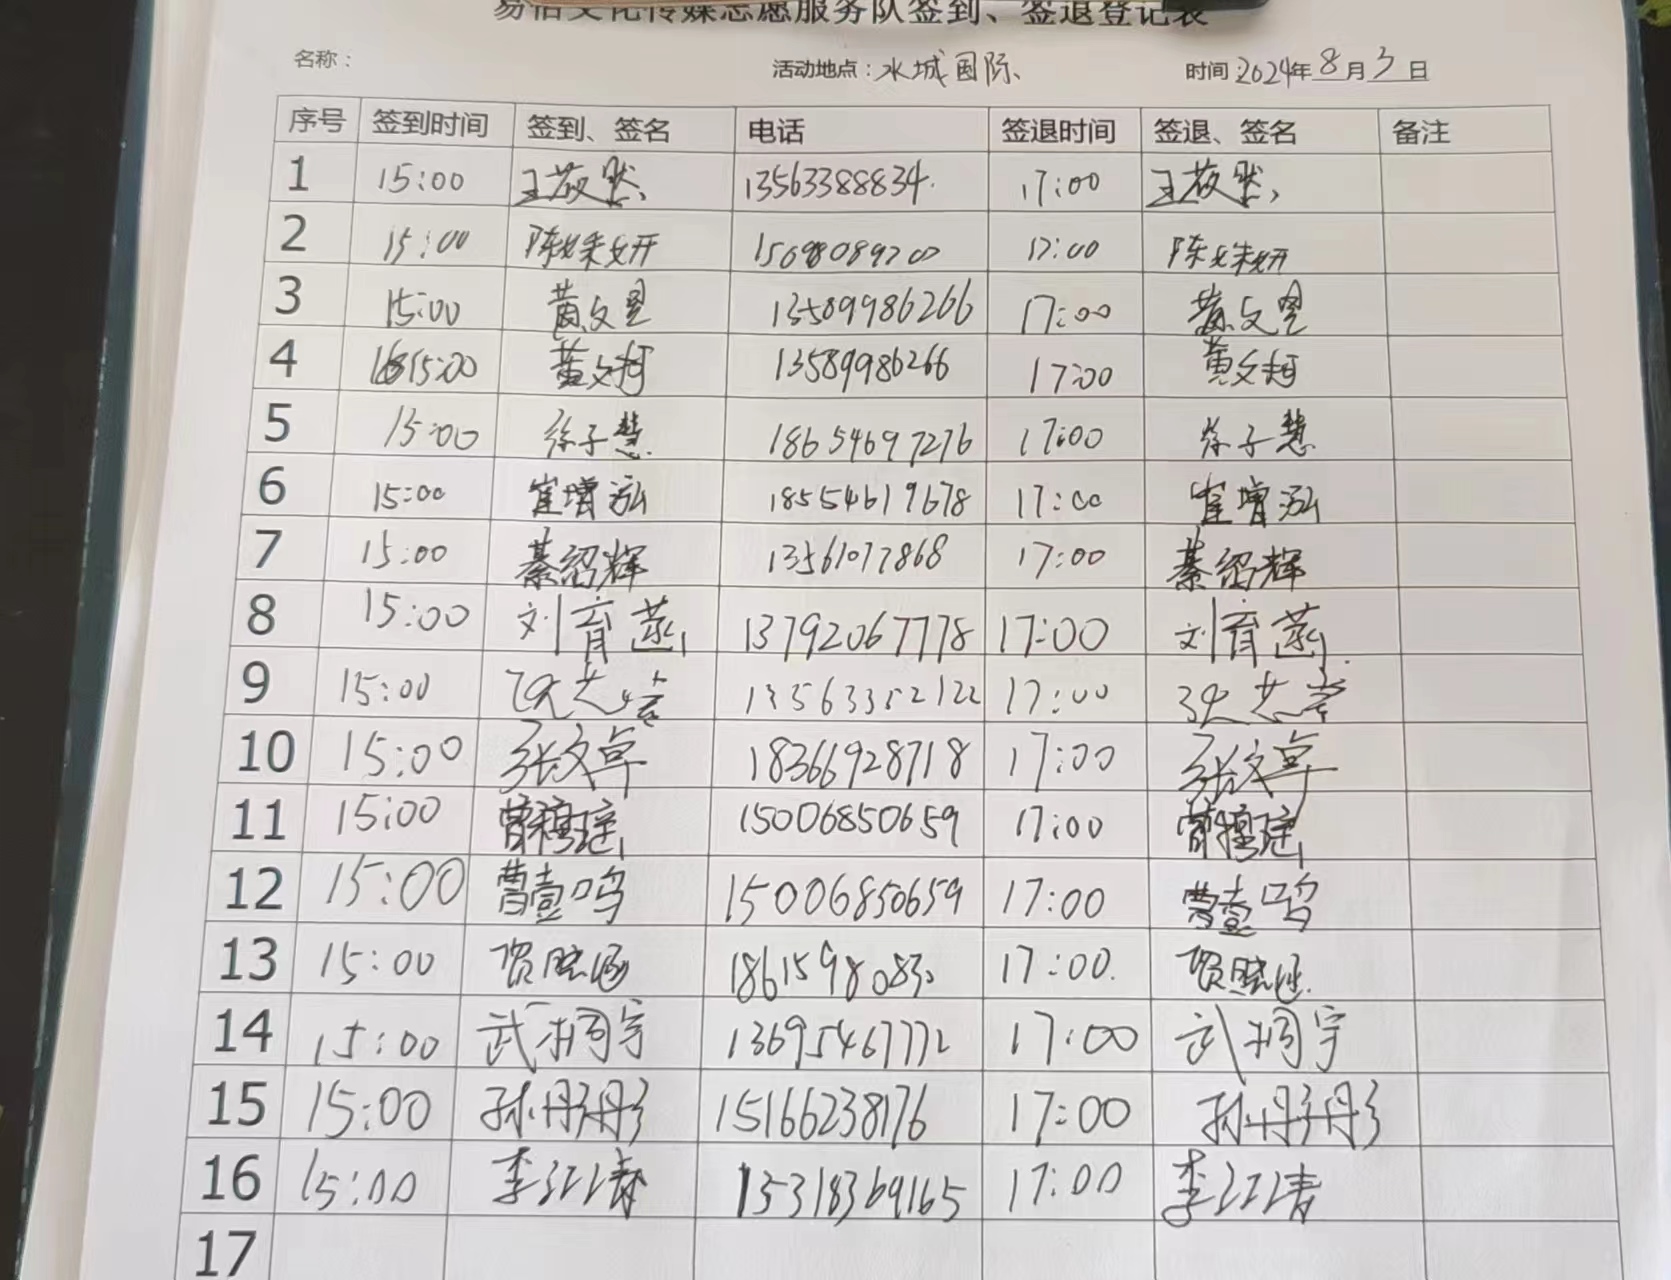 易信文化传媒志愿服务队签到、签退登记表
名称： 活动地点：水城国际、 时间2024年8月3日
序号 签到时间 签到、签名 电话 签退时间 签退、签名 备注
1 15:00 王筱然 13563388834 17:00 王筱然
2 15:00 陈姝妍 15698089200 17:00 陈姝妍
3 15:00 黄文昱 13589986266 17:00 黄文昱
4 15:00 黄文轲 13589986266 17:00 黄文轲
5 15:00 徐子慧 18654697276 17:00 徐子慧
6 15:00 崔增泓 18554619678 17:00 崔增泓
7 15:00 綦绍辉 13561077868 17:00 綦绍辉
8 15:00 刘育菡 13792067778 17:00 刘育菡
9 15:00 13563352122 17:00
10 15:00 张文卓 18366928718 17:00 张文卓
11 15:00 曹穆瑶 15006850659 17:00 曹穆瑶
12 15:00 曹壹鸣 15006850659 17:00 曹壹鸣
13 15:00 贺晓涵 17:00 贺晓涵
14 15:00 武桐宇 13695467772 17:00 武桐宇
15 15:00 孙彤彤 15166238176 17:00 孙彤彤
16 15:00 李江涛 13318369165 17:00 李江涛
17